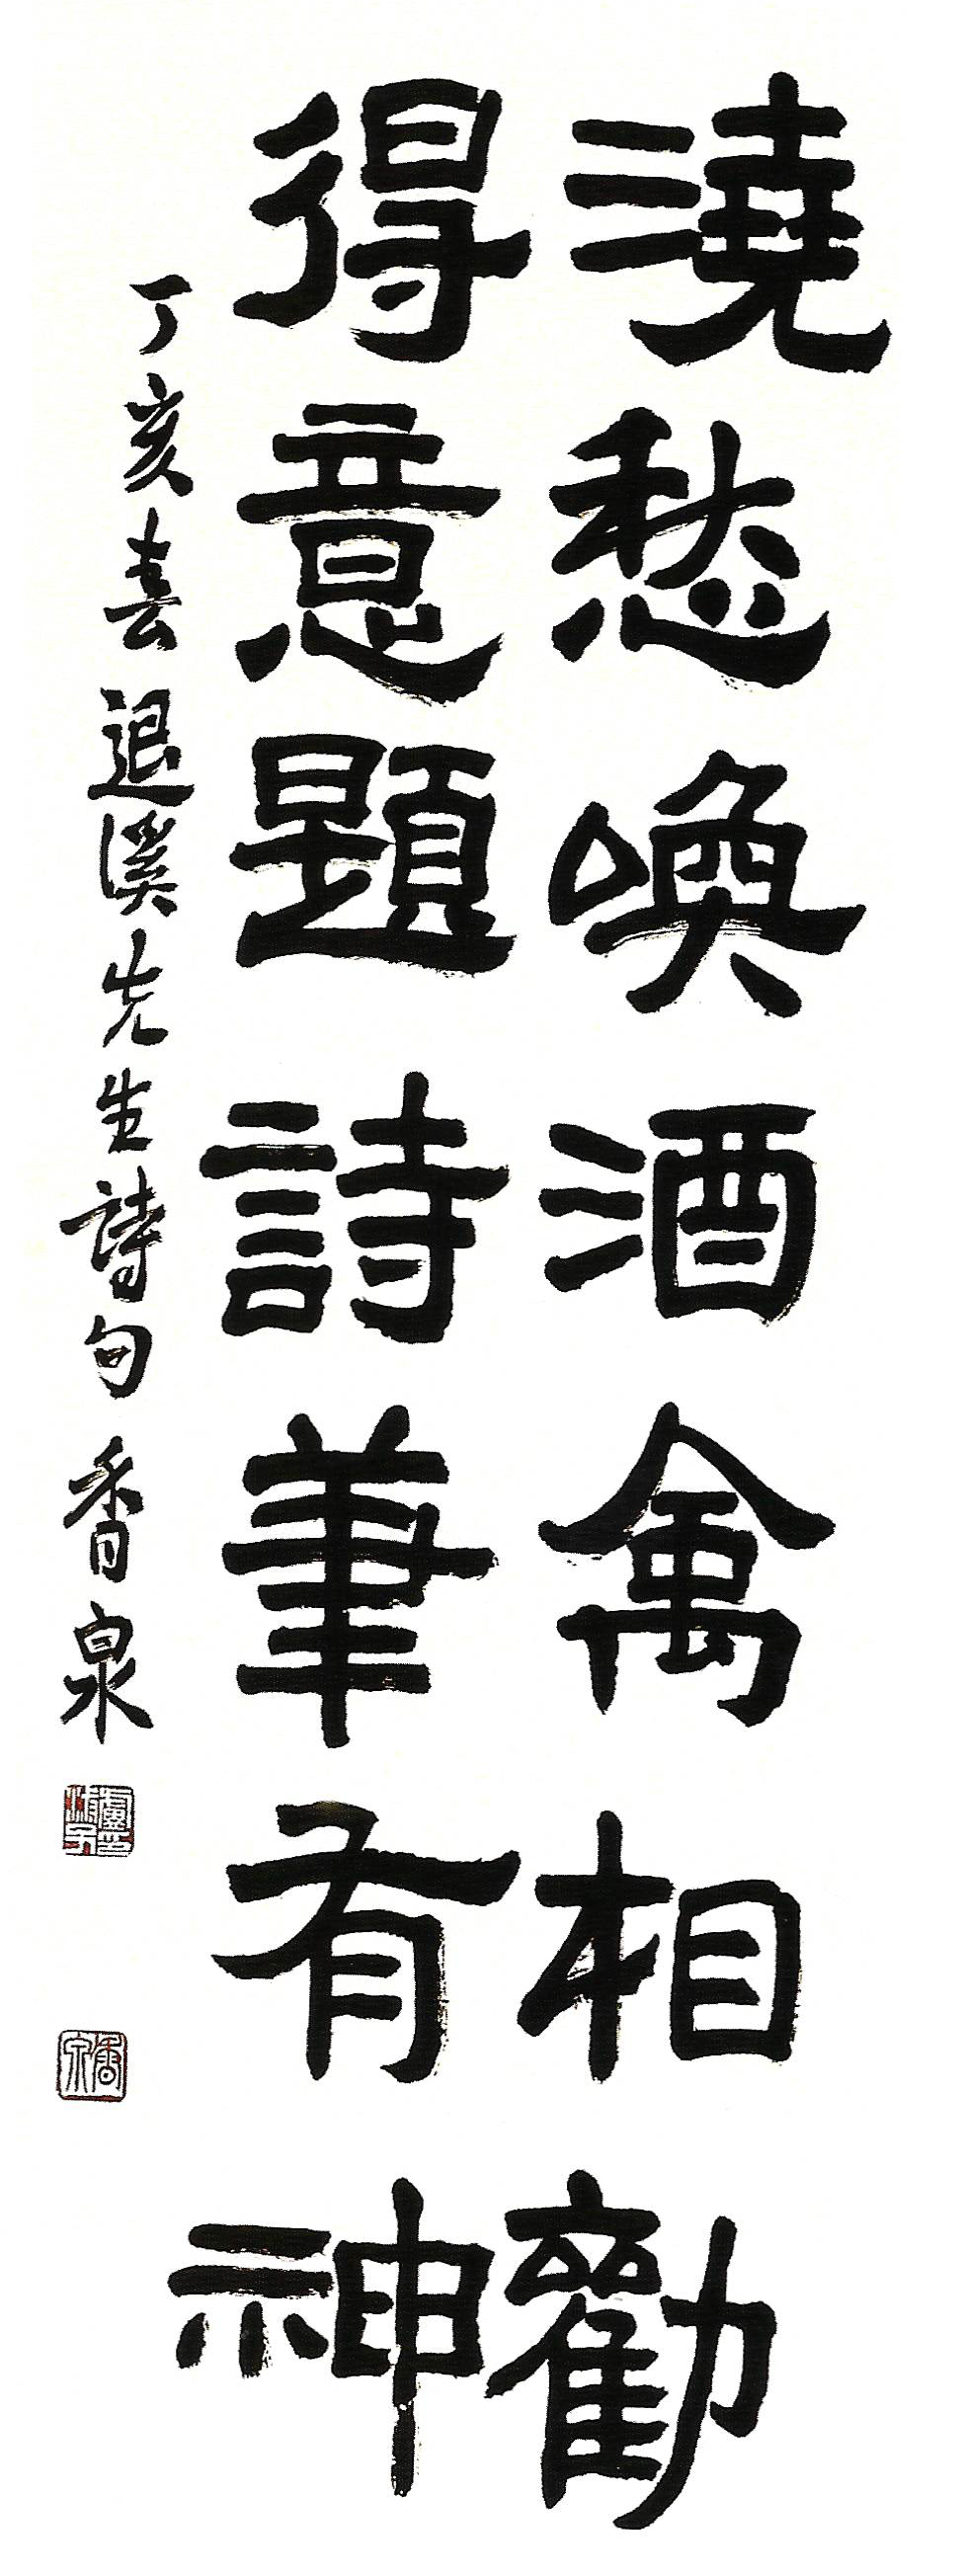 澆愁喚酒禽相勸
得意題詩筆有神
丁亥春退溪先生詩句香泉
香泉